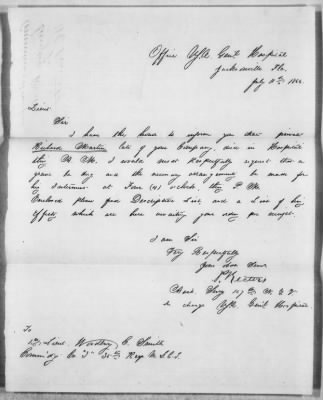 Office Genl Hospital
Jacksonville Fla.
July 11th 186
Lieut.
Sir
I have the honor to inform you that private
Richard Martin late of your Company, died in Hospital
this A M. I would most Respectfully request that a
grave be dug and the necessary arrangements be made for
his interment at Four (4) o'clock, this P M
Enclosed please find Descriptive List, and a List of his
effects which are here awaiting your order for
I am Sir
Very Respectfully
Your
in charge Genl Hospital
To
1st Lieut C. Smith
Commdg Co 35th Regt U.S.C.T.